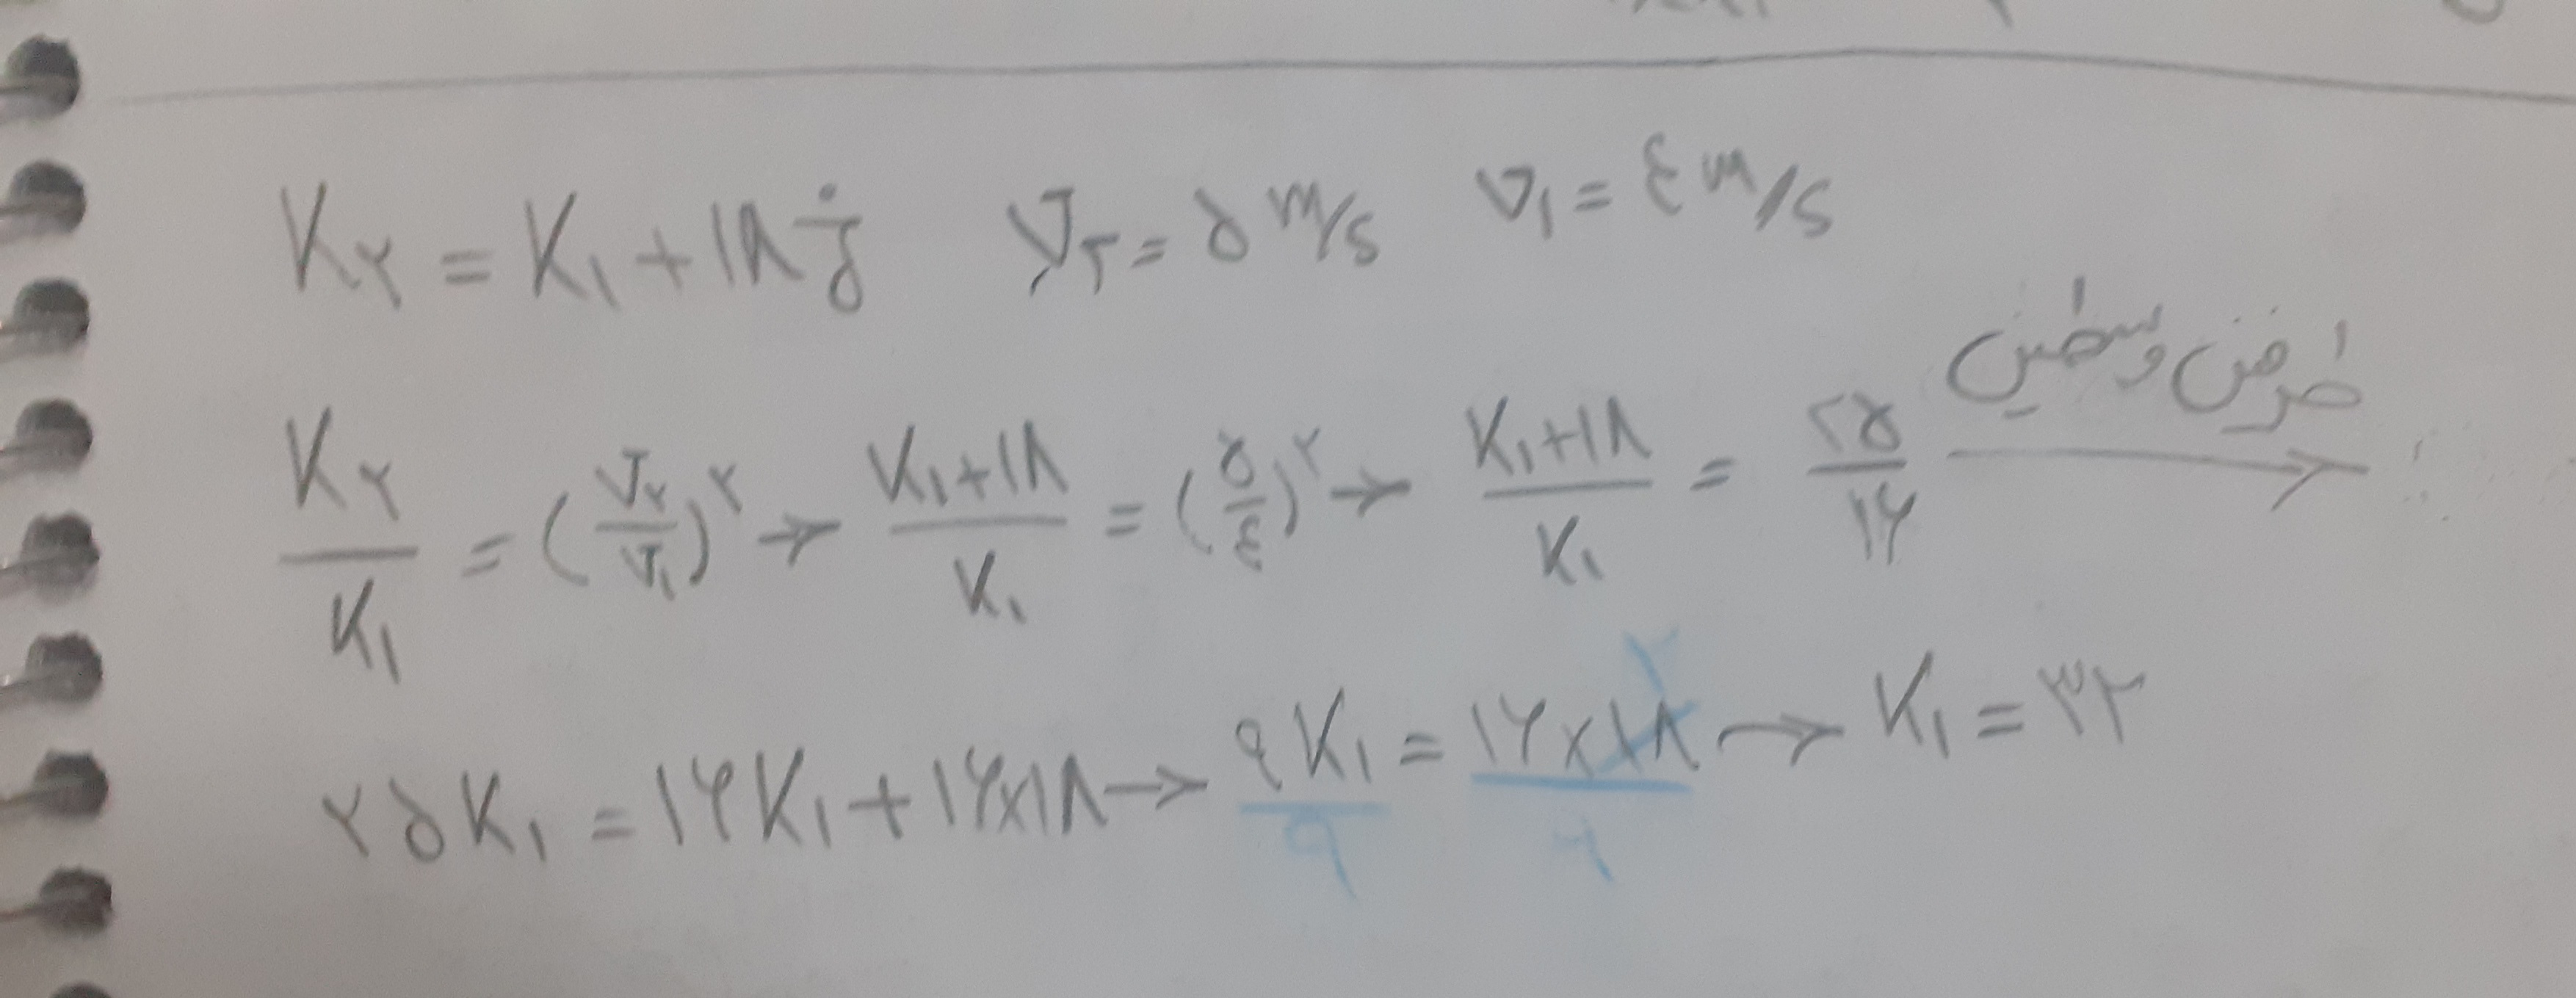 K۲ = K۱ + ۱۸ ژ V۲ = ۵ m/s V۱ = ۴ m/s
K۲/K۱ = (V۲/V۱)^۲ → K۱+۱۸/K۱ = (۵/۴)^۲ → K۱+۱۸/K۱ = ۲۵/۱۶ طرفین وسطین →
۲۵K۱ = ۱۶K۱ + ۱۶×۱۸ → ۹K۱/۹ = ۱۶×۱۸/۹ ۲ → K۱ = ۳۲